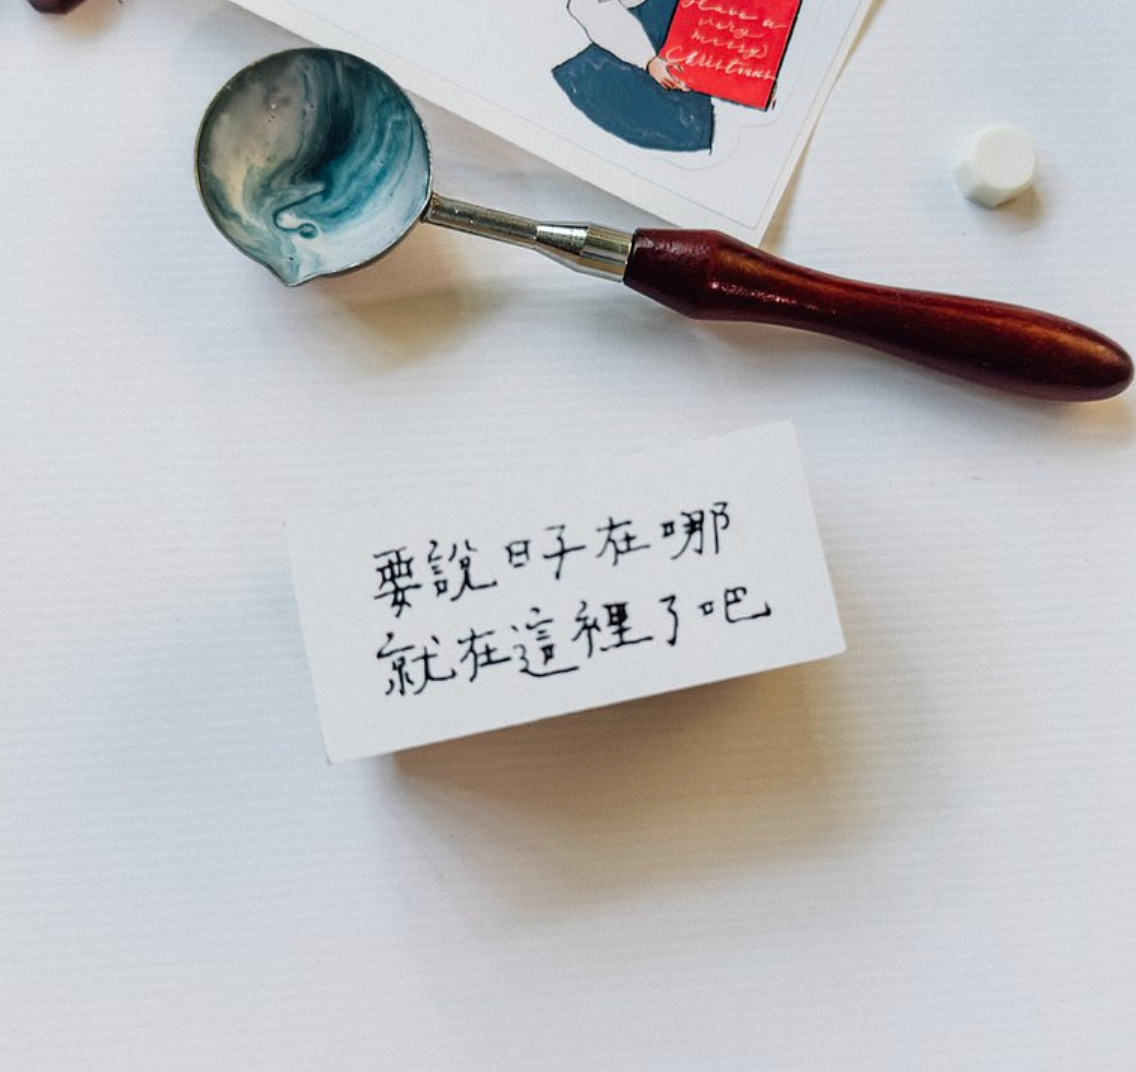 Have a
very
merry
Christmas
要說日子在哪
就在這裡了吧